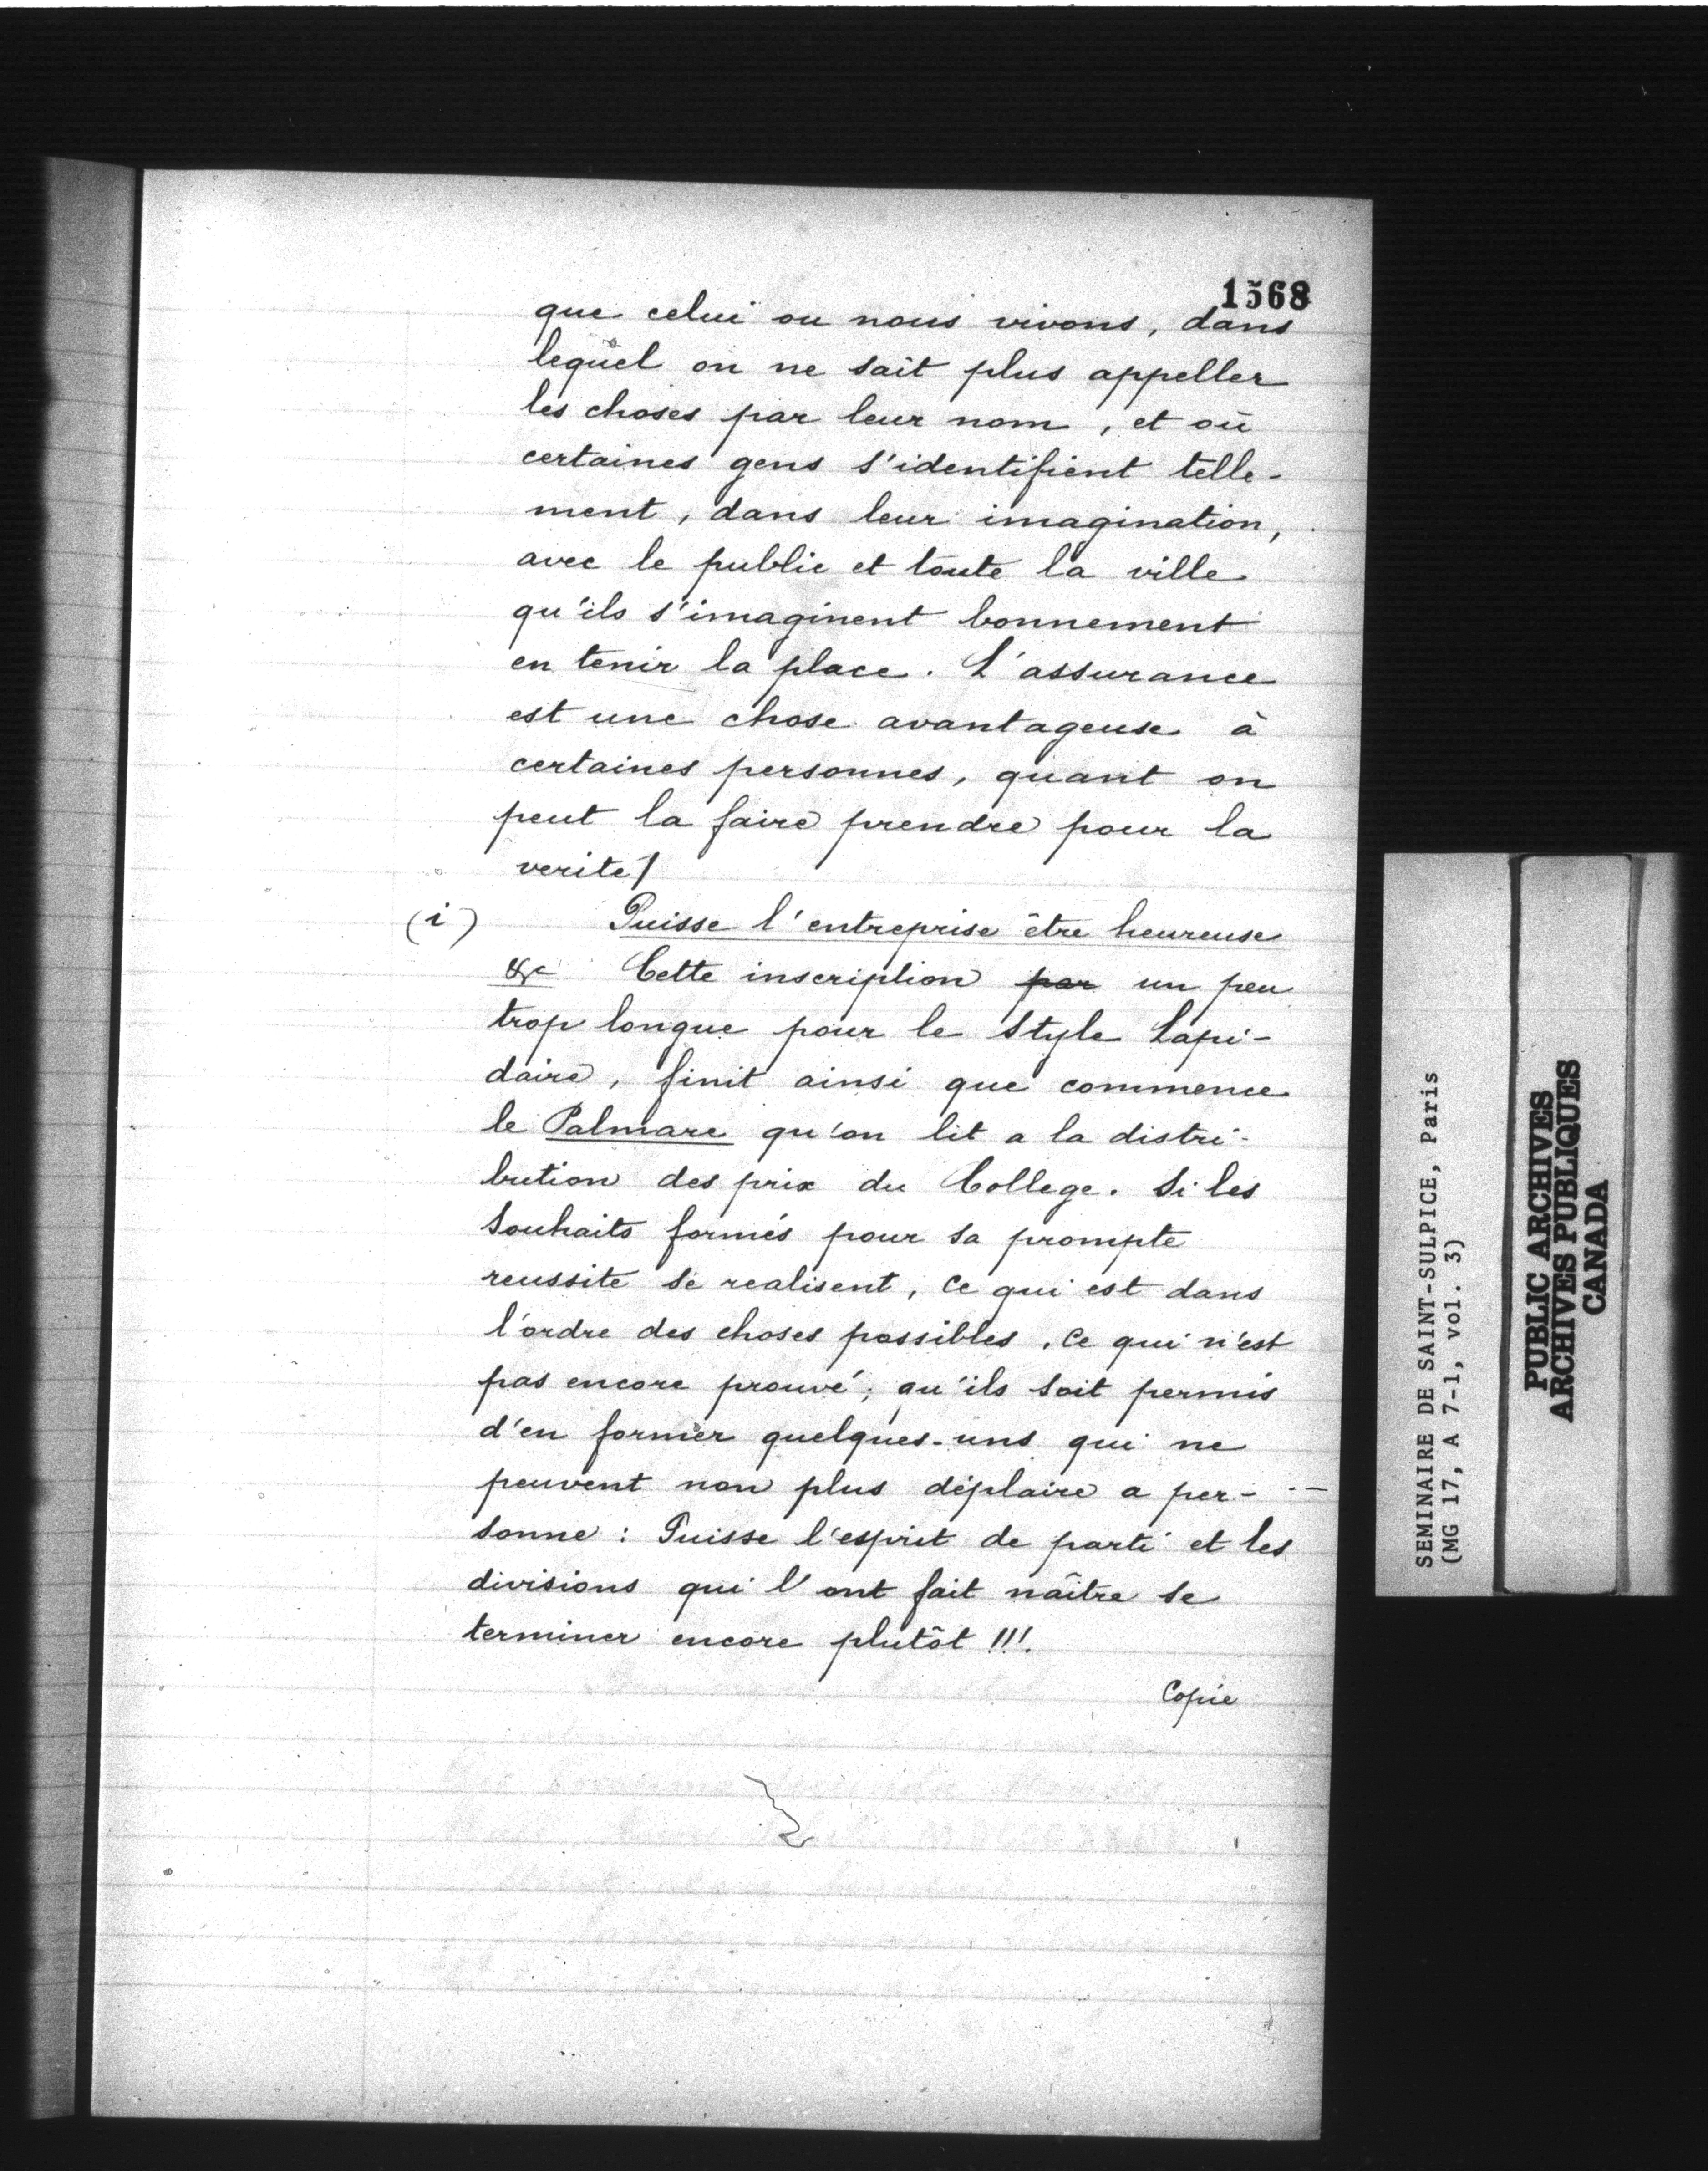 1568
que celui ou nous vivons, dans
lequel on ne sait plus appeller
les choses par leur nom, et où
certaines gens s'identifient telle-
ment, dans leur imagination,
avec le public et toute la ville
qu'ils s'imaginent bonnement
en tenir la place. L'assurance
est une chose avantageuse à
certaines personnes, quant on
peut la faire prendre pour la
verite!
(i) Puisse l'entreprise être heureuse
&c Cette inscription par un peu
trop longue pour le Style Lapi-
daire, finit ainsi que commence
le Palmare qu'on lit a la distri-
bution des prix du College. Si les
Souhaits formés pour sa prompte
reussite se realisent, ce qui est dans
l'ordre des choses possibles. Ce qui n'est
pas encore prouvé; qu'ils soit permis
d'en former quelques-uns qui ne
peuvent non plus déplaire a per-
sonne : Puisse l'esprit de parti et les
divisions qui l'ont fait naître se
terminer encore plutôt !!!
Copie
SEMINAIRE DE SAINT-SULPICE, Paris
(MG 17, A 7-1, vol. 3)
PUBLIC ARCHIVES
ARCHIVES PUBLIQUES
CANADA